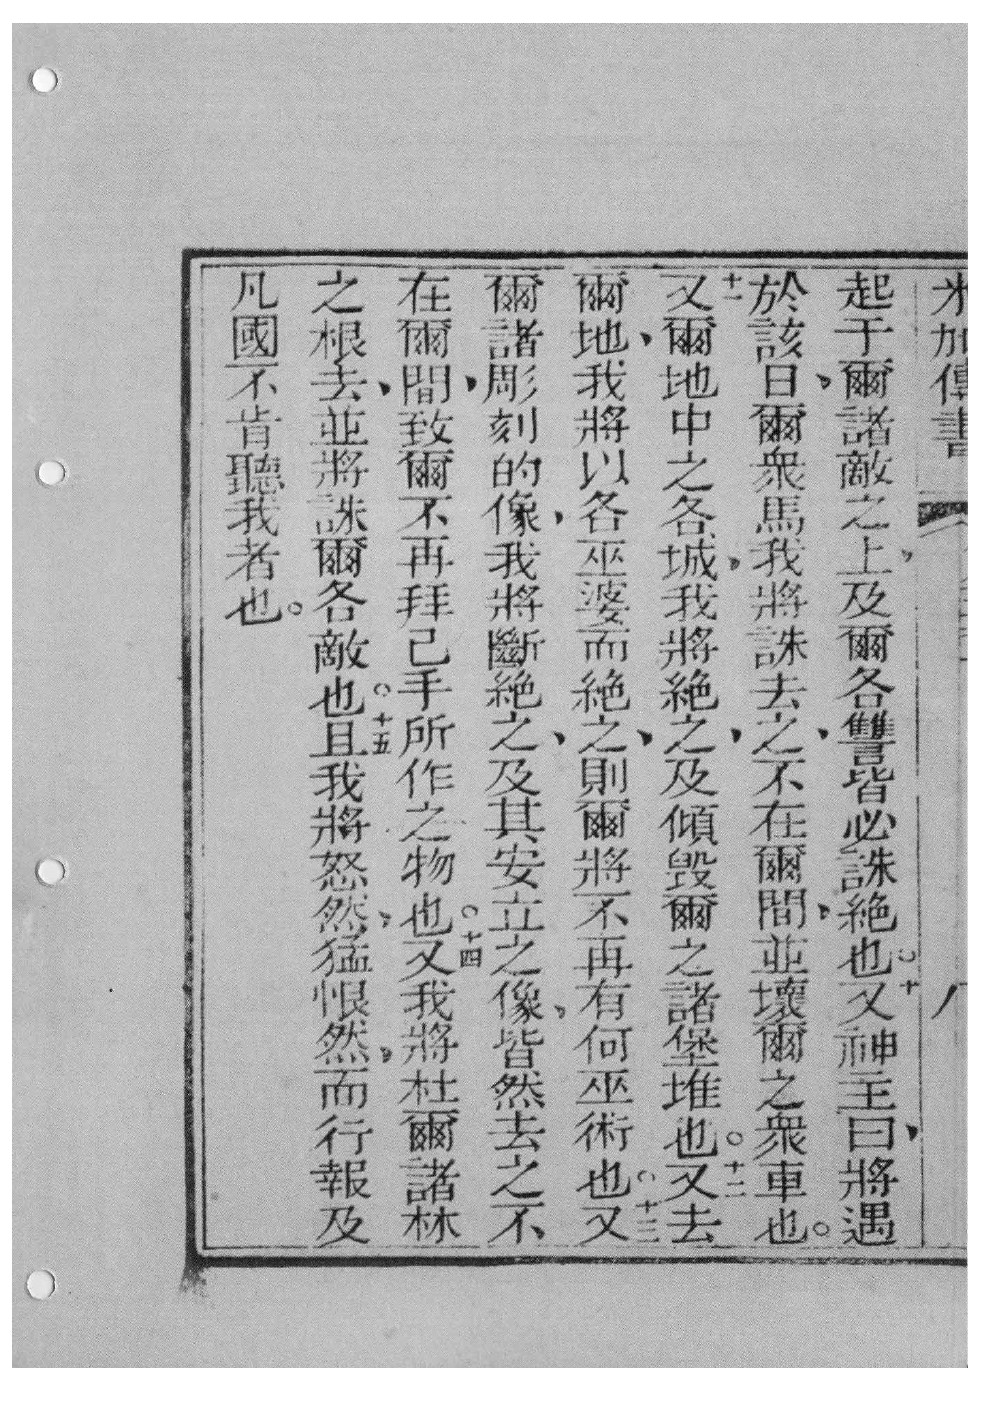 米加傳書 八
起于爾諸敵之上、及爾各讐皆必誅絕也。十又神主曰、將遇
於該日、爾衆馬我將誅去之、不在爾間、並壞爾之衆車也。
十一又爾地中之各城、我將絕之、及傾毀爾之諸堡堆也。十二又去
爾地、我將以各巫婆而絕之、則爾將不再有何巫術也。十三又
爾諸彫刻的像、我將斷絕之、及其安立之像、皆然去之不
在爾間、致爾不再拜己手所作之物也。十四又我將杜爾諸林
之根去、並將誅爾各敵也。十五且我將怒然、猛恨然、而行報及
凡國不肯聽我者也。